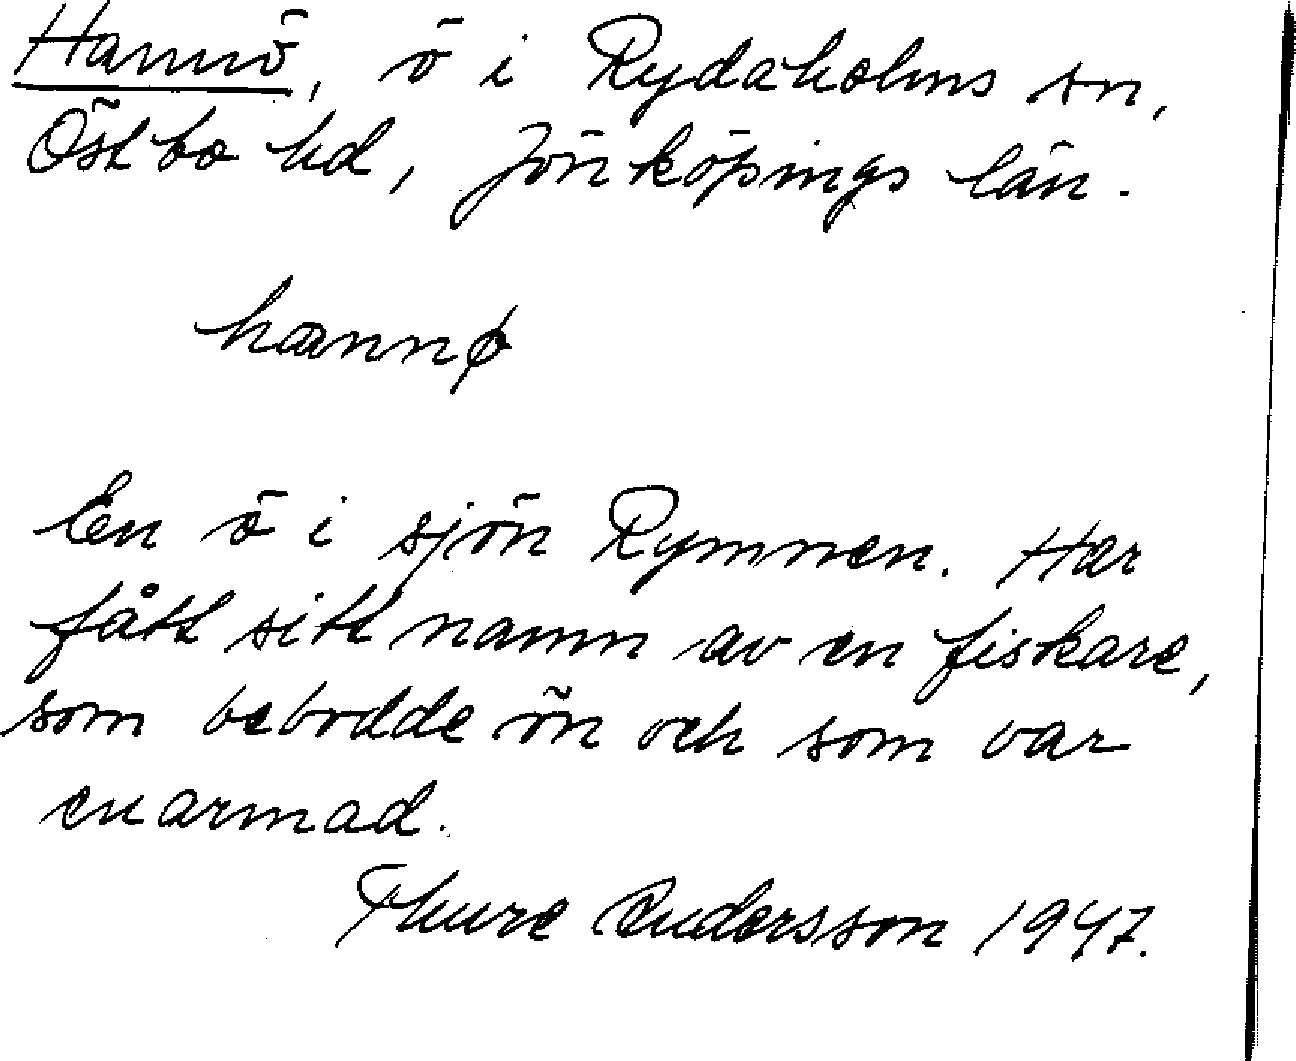 Hannö, ö i Rydaholms sn,
Östbo hd, Jönköpings län.
hannø
En ö i sjön Rymnen. Har
fått sitt namn av en fiskare,
som bebodde ön och som var
enarmad.
Thure Andersson 1947.